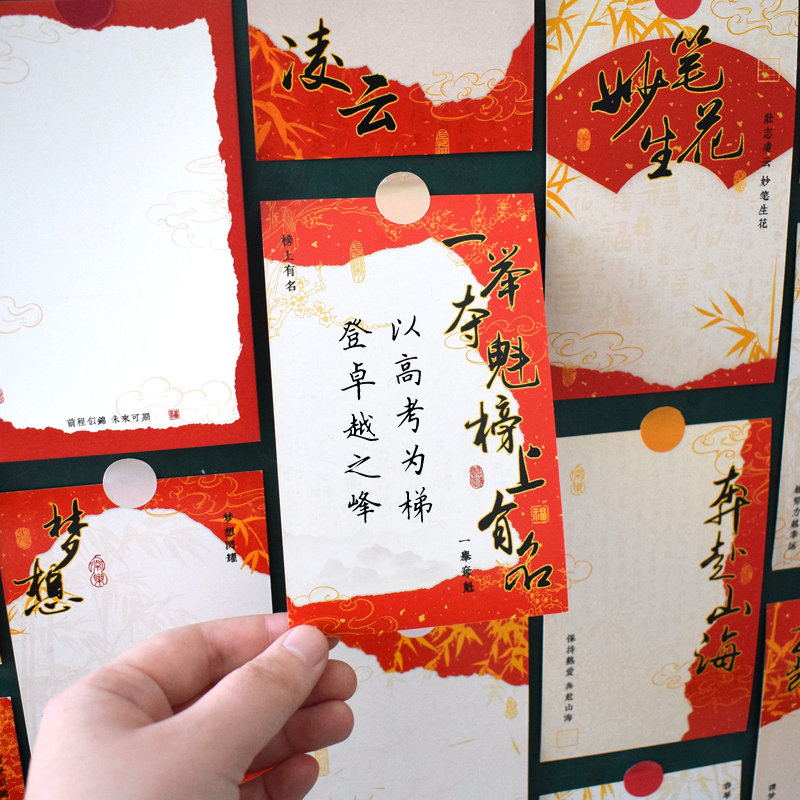 前程似錦 未來可期
凌云
妙笔
生花
壯志凌云 妙笔生花
榜上有名
一举夺魁榜上有名
以高考为梯
登卓越之峰
一舉奪魁
梦想
梦想闪耀
奔赴山海
保持熱愛 奔赴山海